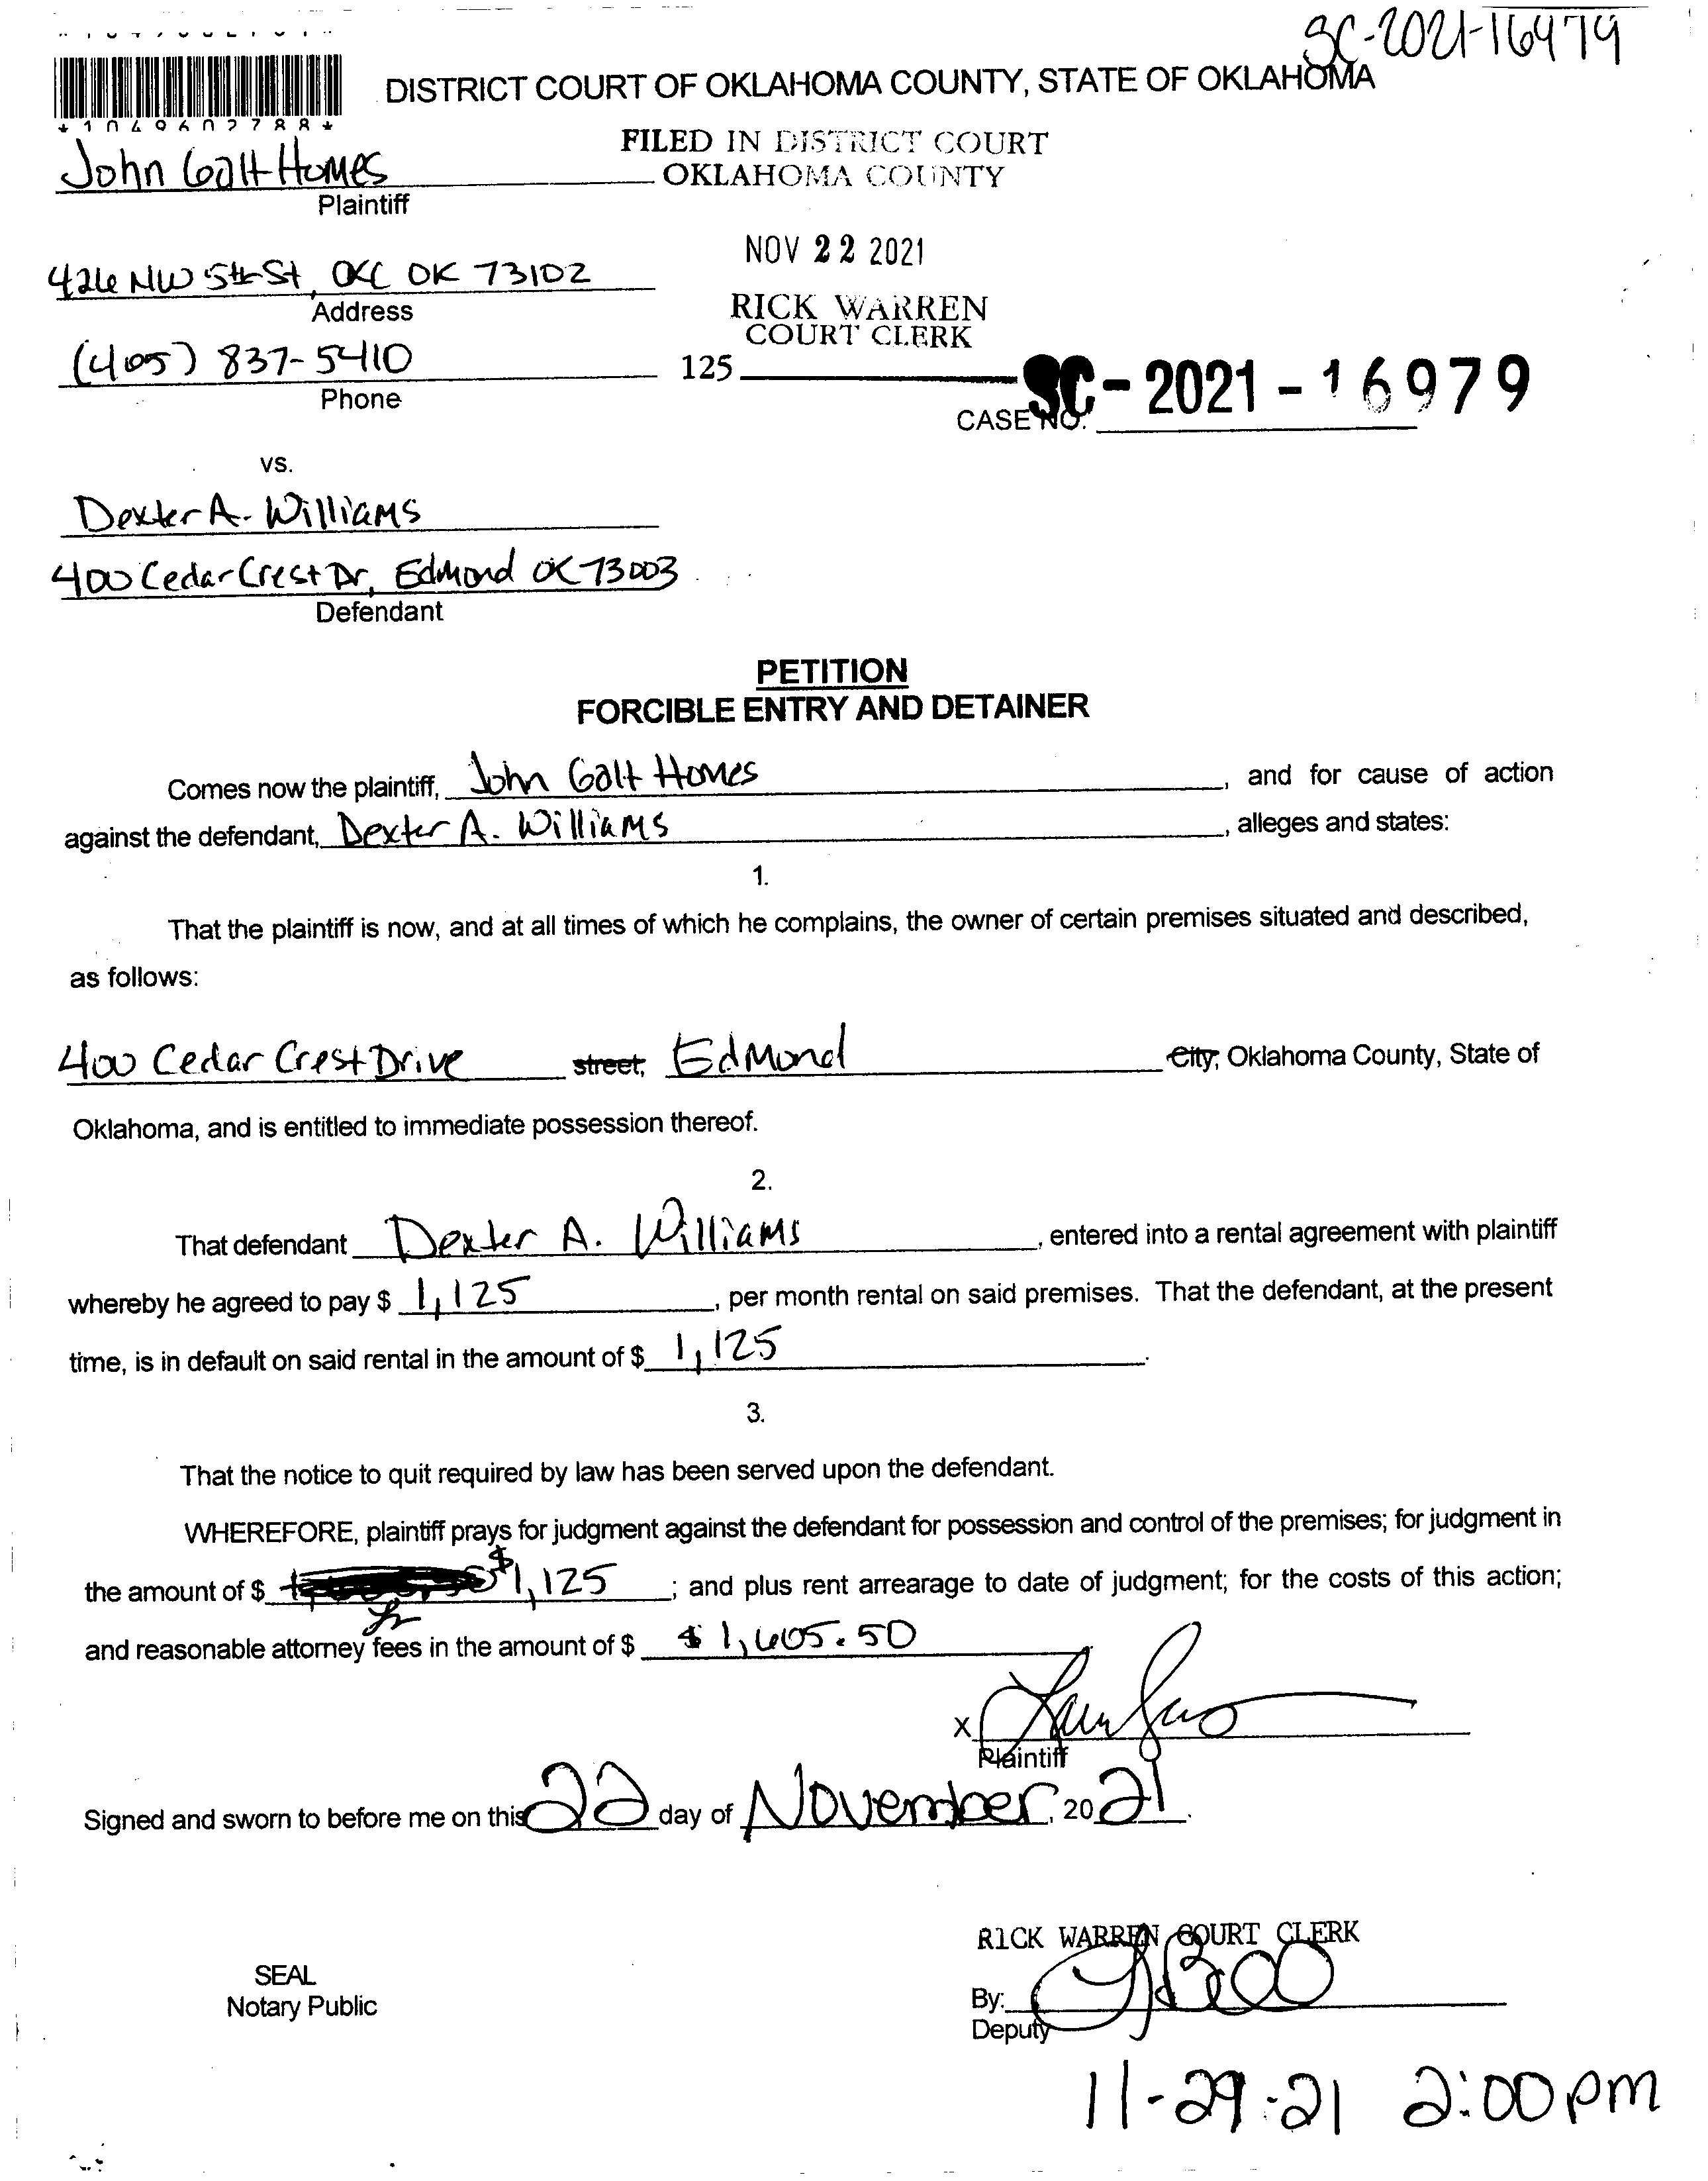 SC-2021-16979
*1049602788*
DISTRICT COURT OF OKLAHOMA COUNTY, STATE OF OKLAHOMA
FILED IN DISTRICT COURT
OKLAHOMA COUNTY
John Galt Homes
Plaintiff
NOV 22 2021
426 NW 5th St, OKC OK 73102
Address
RICK WARREN
COURT CLERK
(405) 837-5410
125
Phone
SC-2021-16979
CASE NO.
vs.
Dexter A. Williams
400 Cedar Crest Dr, Edmond OK 73003
Defendant
PETITION
FORCIBLE ENTRY AND DETAINER
Comes now the plaintiff, John Galt Homes, and for cause of action
against the defendant, Dexter A. Williams, alleges and states:
1.
That the plaintiff is now, and at all times of which he complains, the owner of certain premises situated and described,
as follows:
400 Cedar Crest Drive street, Edmond City, Oklahoma County, State of
Oklahoma, and is entitled to immediate possession thereof.
2.
That defendant Dexter A. Williams, entered into a rental agreement with plaintiff
whereby he agreed to pay $ 1,125, per month rental on said premises. That the defendant, at the present
time, is in default on said rental in the amount of $ 1,125.
3.
That the notice to quit required by law has been served upon the defendant.
WHEREFORE, plaintiff prays for judgment against the defendant for possession and control of the premises; for judgment in
the amount of $ $1,125; and plus rent arrearage to date of judgment; for the costs of this action;
and reasonable attorney fees in the amount of $ $1,605.50
X
Plaintiff
Signed and sworn to before me on this 22 day of November, 2021.
RICK WARREN COURT CLERK
SEAL
Notary Public
By:
Deputy
11-29-21 2:00pm